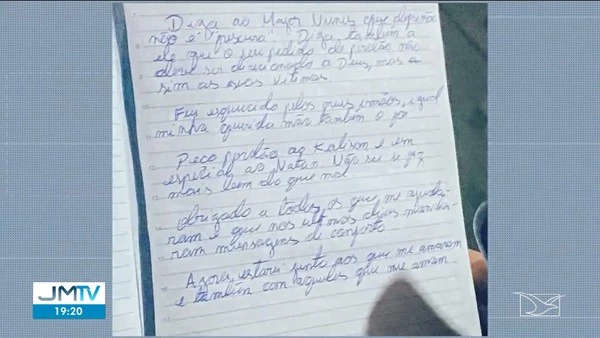 Diga ao Major Nunes que depressão
não é "frescura". Diga, também a
ele que o seu pedido de perdão não
deve ser direcionado a Deus, mas a
sim as suas vítimas.
Fui esquecido pelos meus irmãos, igual
minha querida mãe também o foi
Peço perdão ao Kalison e em
especial ao Natan. Não sei se fiz
mais bem do que mal.
Obrigado a todos os que me ajuda-
ram e que nos últimos dias manda-
ram mensagens de conforto.
Agora, estarei junto aos que me amaram
e também com aqueles que me amam.
JMTV
19:20